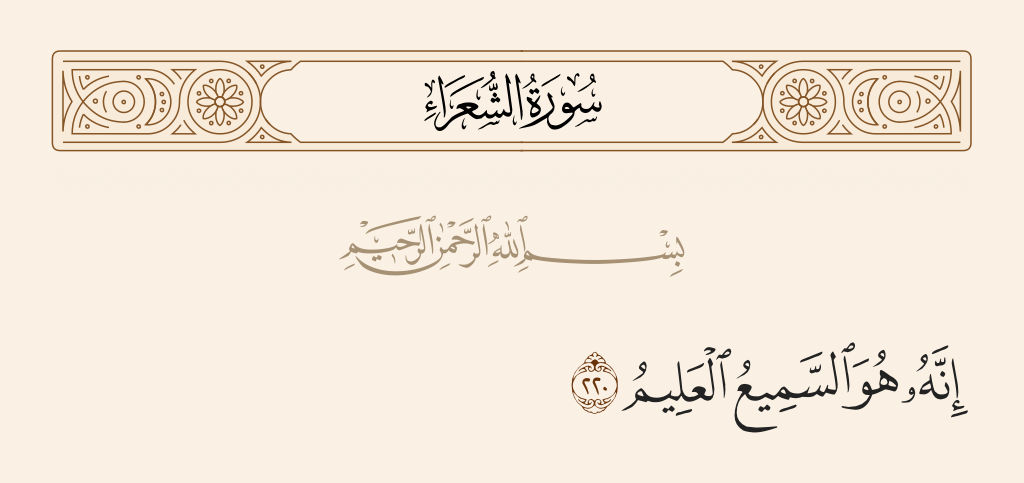 سُورَةُ الشُّعَرَاءِ
بِسْمِ ٱللَّهِ ٱلرَّحْمَٰنِ ٱلرَّحِيمِ
إِنَّهُۥ هُوَ ٱلسَّمِيعُ ٱلْعَلِيمُ ٢٢٠